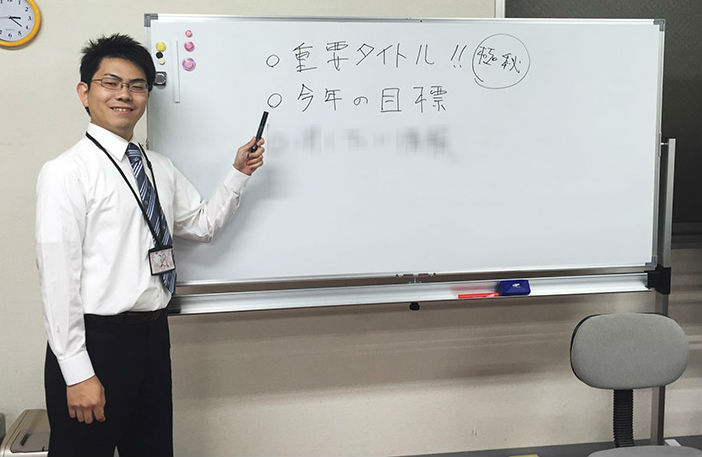 ○ 重要タイトル!! 極秘
○ 今年の目標